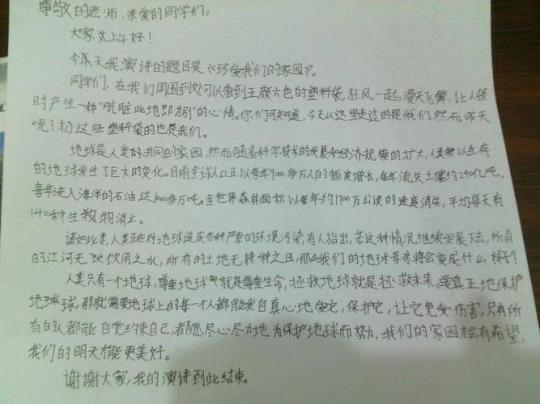 尊敬的老师、亲爱的同学们：
大家上午好！
今天我演讲的题目是《珍爱我们的家园》。
同学们，在我们周围到处可以看到五颜六色的塑料袋，狂风一起，漫天飞舞，让人顿
时产生一种"肮脏此地即为"的心情。你们可知道，今天从这里走过的是我们，然而昨天
呢？扔这些塑料袋的也是我们。
地球是人类的共同的家园，然而随着科学技术的发展和经济规模的扩大，人类赖以生存
的地球发生了巨大的变化。目前全球人口正以每年900多万人的幅度增长，每年流失土壤约240亿吨，
每年流入海洋的石油达1000多万吨。全世界森林面积以每年约1700万公顷的速度消失，平均每天有
140种生物消亡。
诸如此类，人类正在对地球造成各种严重的环境污染，有人指出，若这种情况继续发展下去，所有
的江河无可饮用之水，所有的土地无耕种之田，那么我们的地球母亲将会变成什么样子？
人类只有一个地球，尊重地球就是尊重生命，拯救地球就是拯救未来。要真正地保护
地球，那就需要地球上的每一个人都能发自真心地爱它，保护它，让它免受伤害，只有所
有的人都能自觉约束自己，都愿尽心尽力地为保护地球而努力，我们的家园才会有希望，
我们的明天才能更美好。
谢谢大家，我的演讲到此结束。